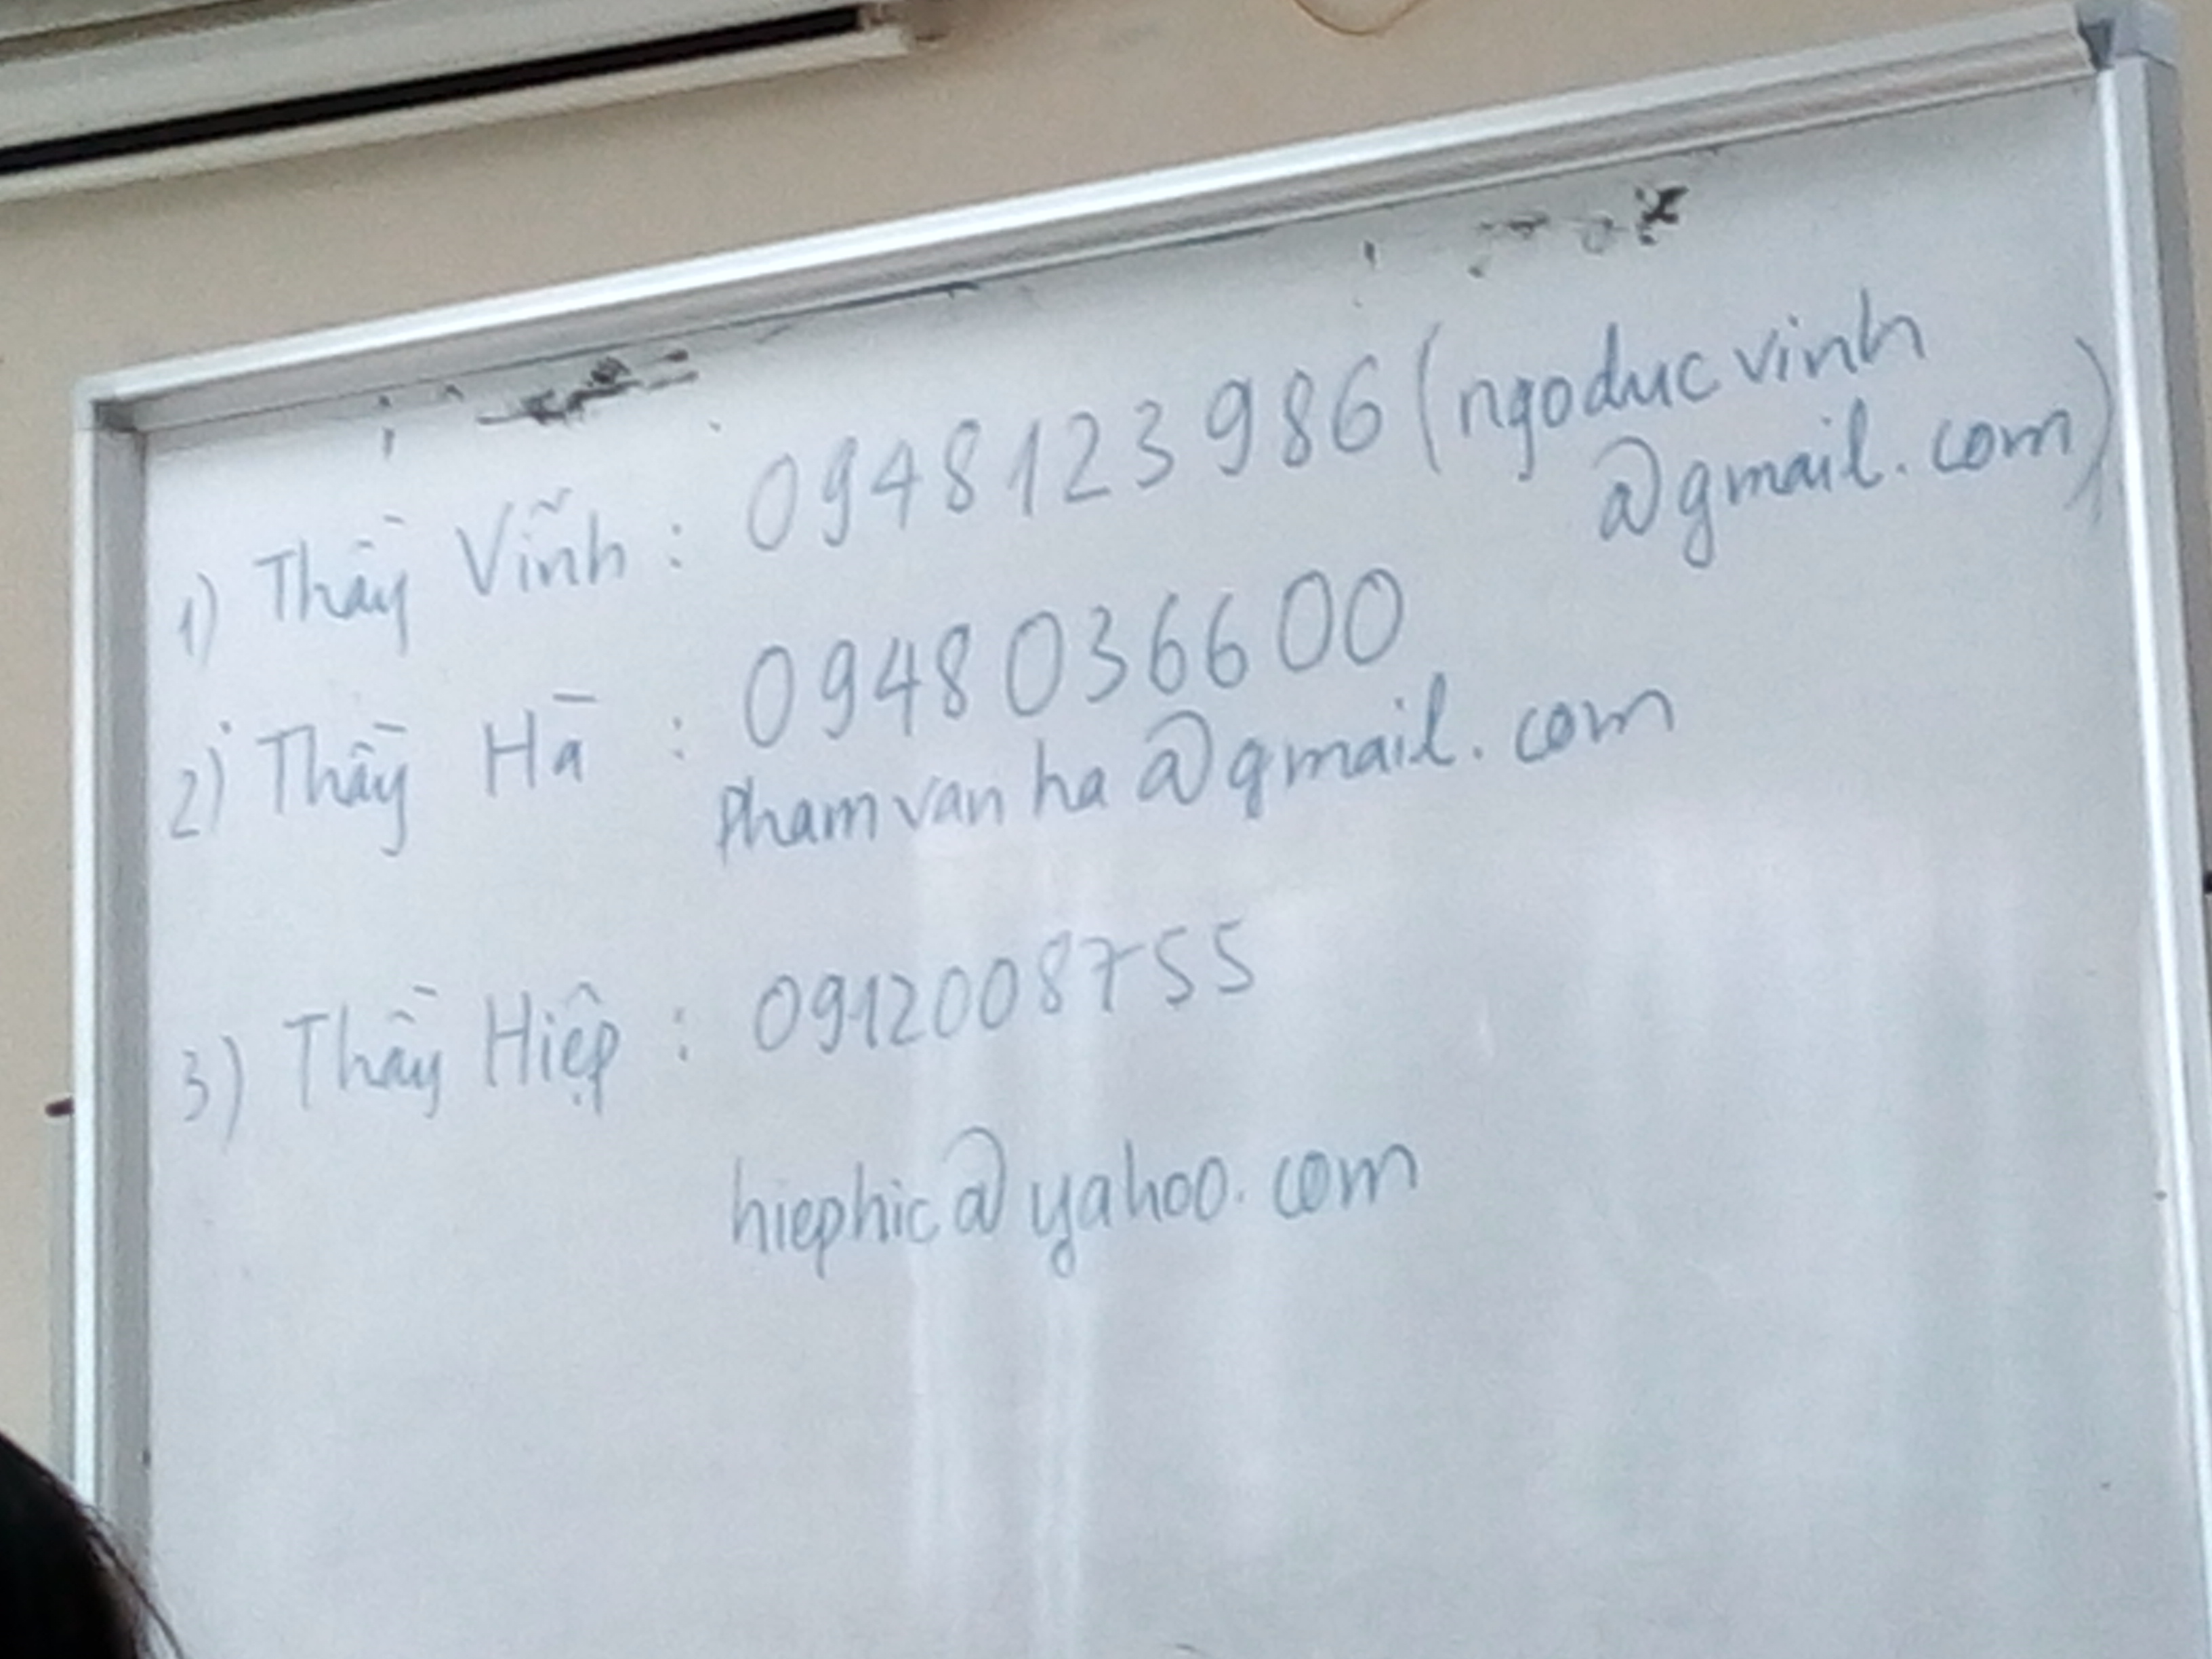 1) Thầy Vĩnh : 0948123986 (ngoducvinh
@gmail.com)
2) Thầy Hà : 0948036600
phamvanha@gmail.com
3) Thầy Hiệp : 0912008755
hiephic@yahoo.com